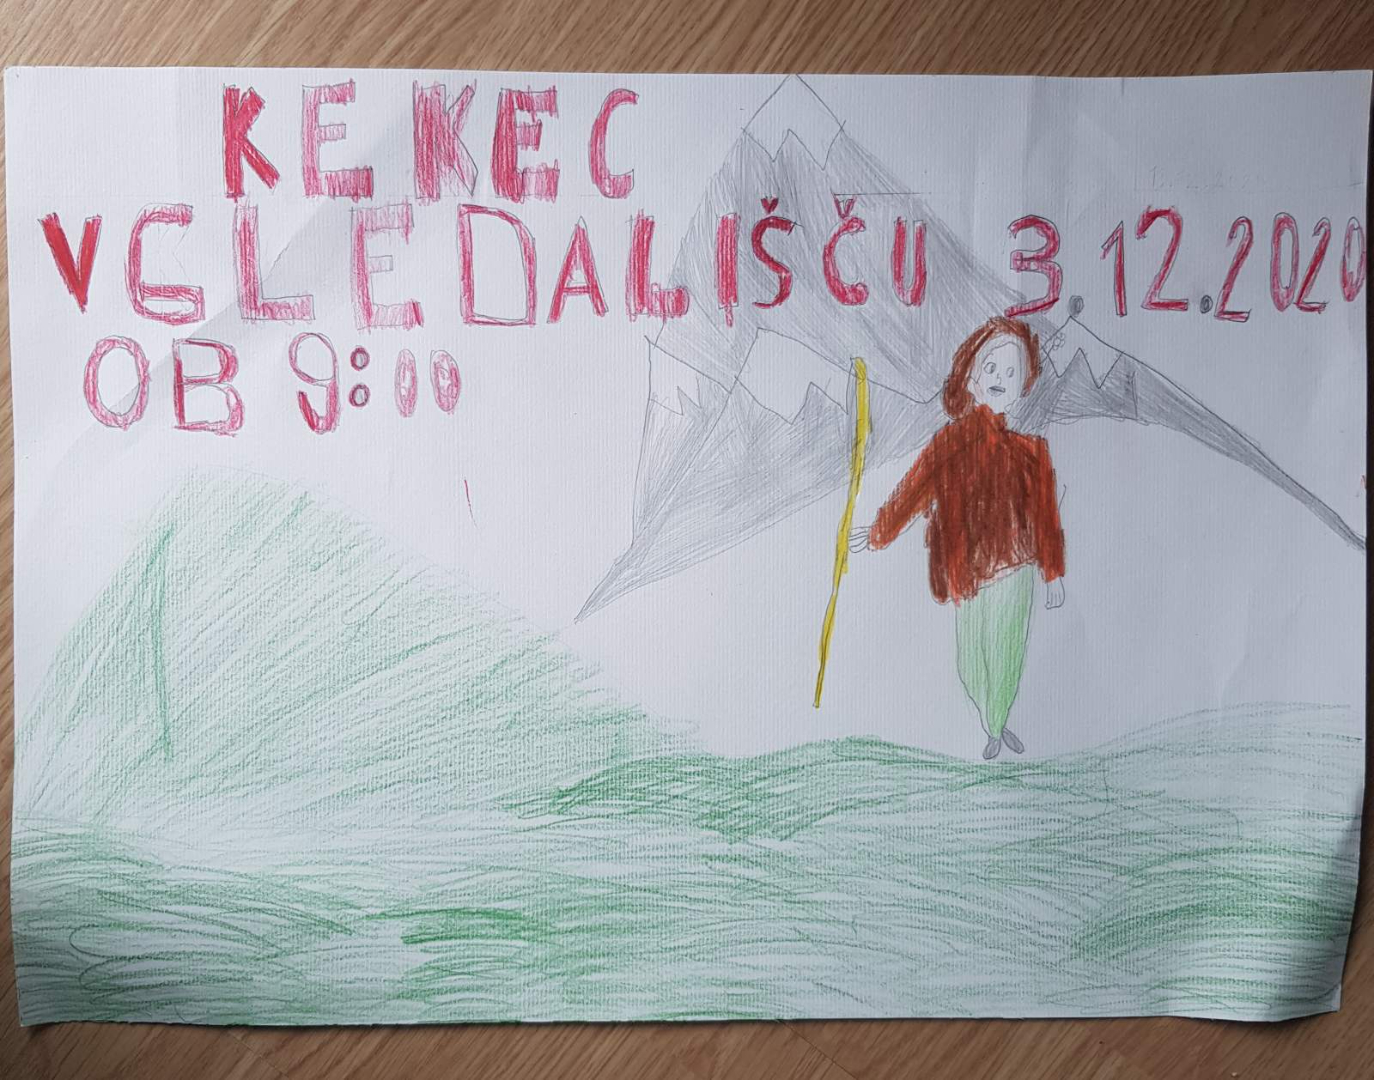 KEKEC
V GLEDALIŠČU 3.12.2020
OB 9:00